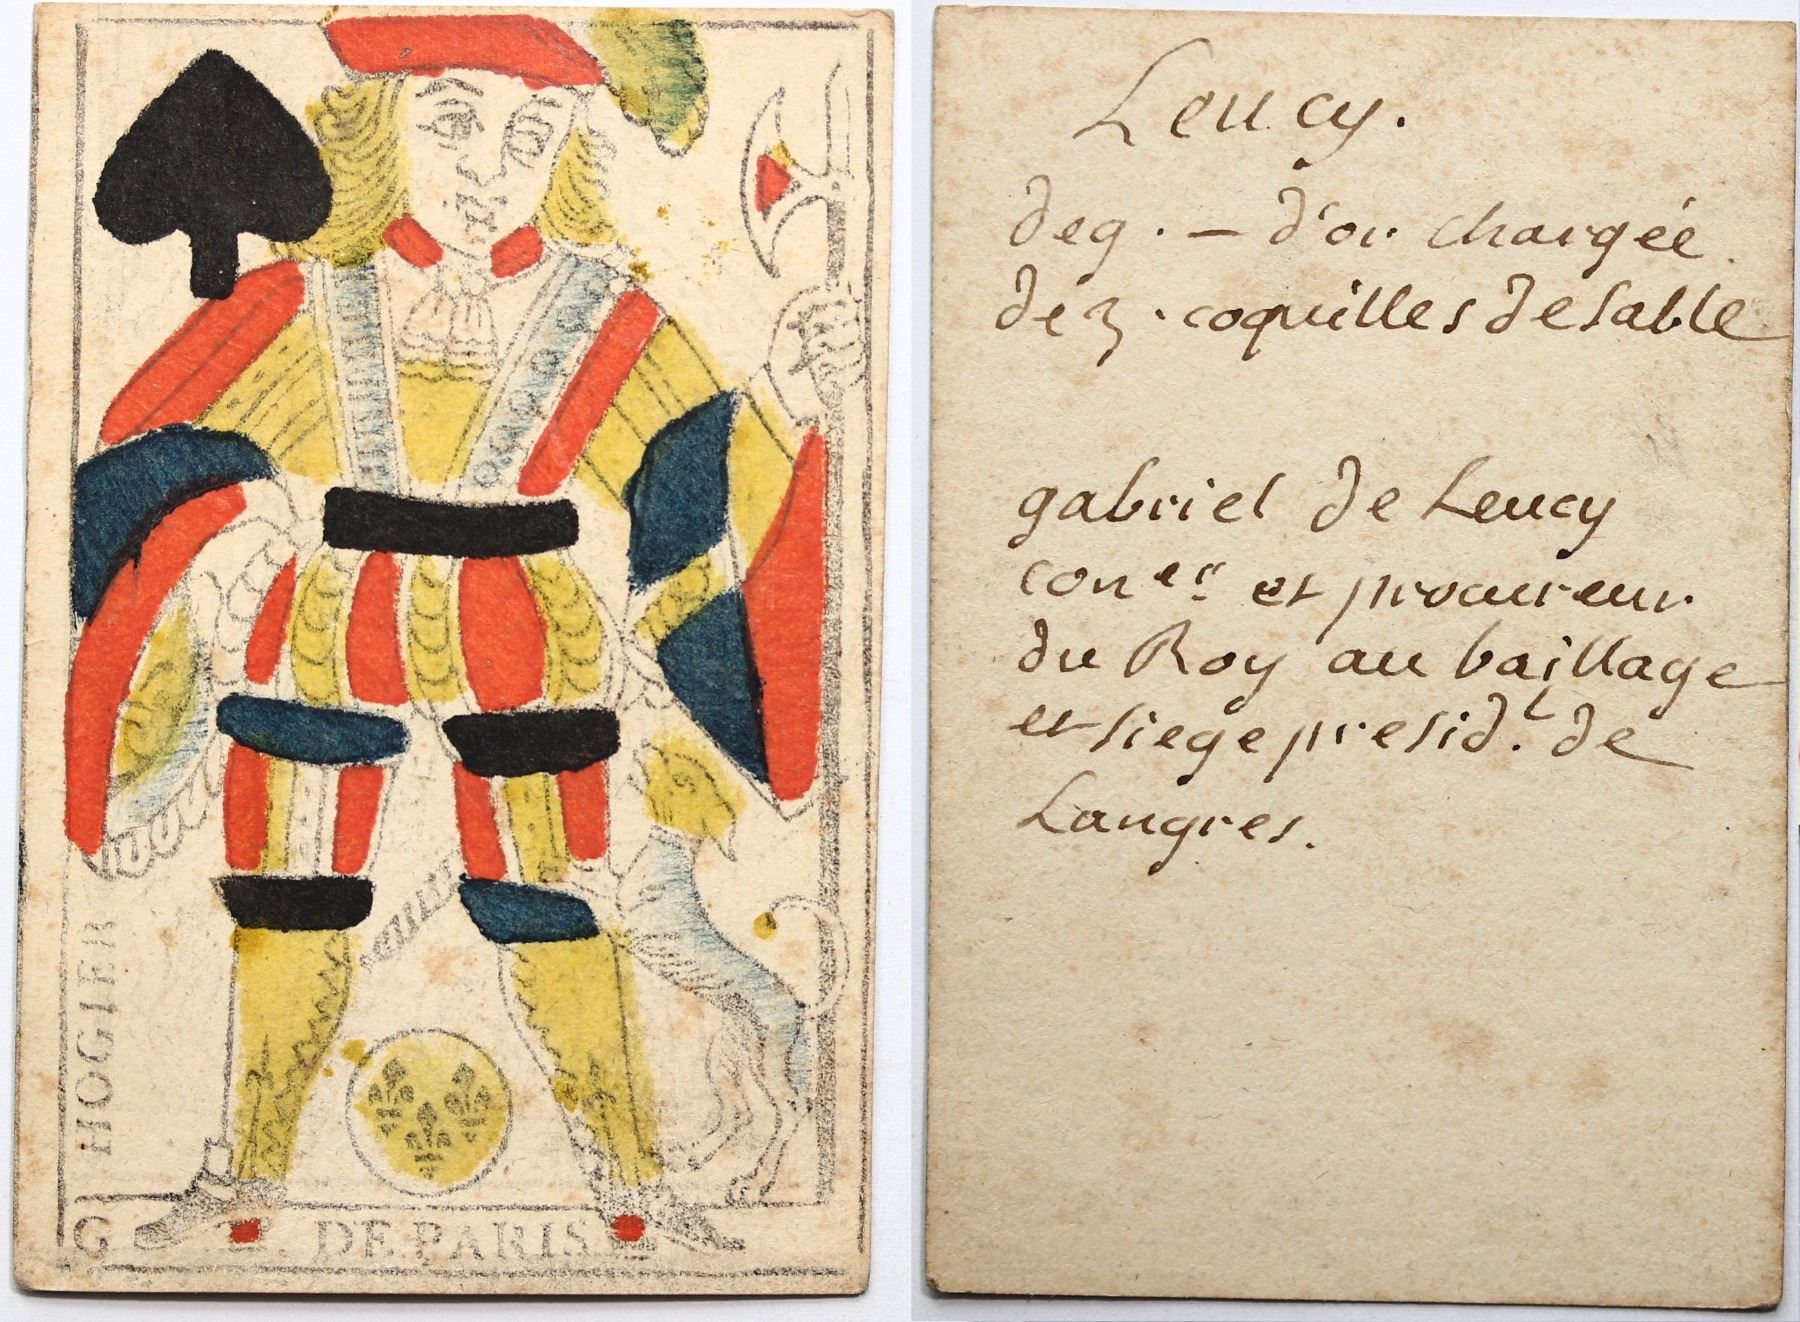 HOGIER
G DE PARIS
Leucy.
deg. - d'or chargée
de 3. coquilles de sable
gabriel de Leucy
con.er et procureur
du Roy au baillage
et siege presid.l de
Langres.